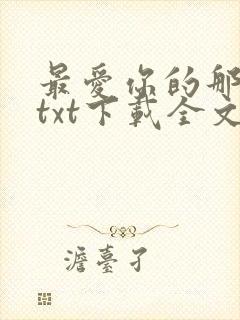 最愛你的那
txt下載全文
澹臺孑